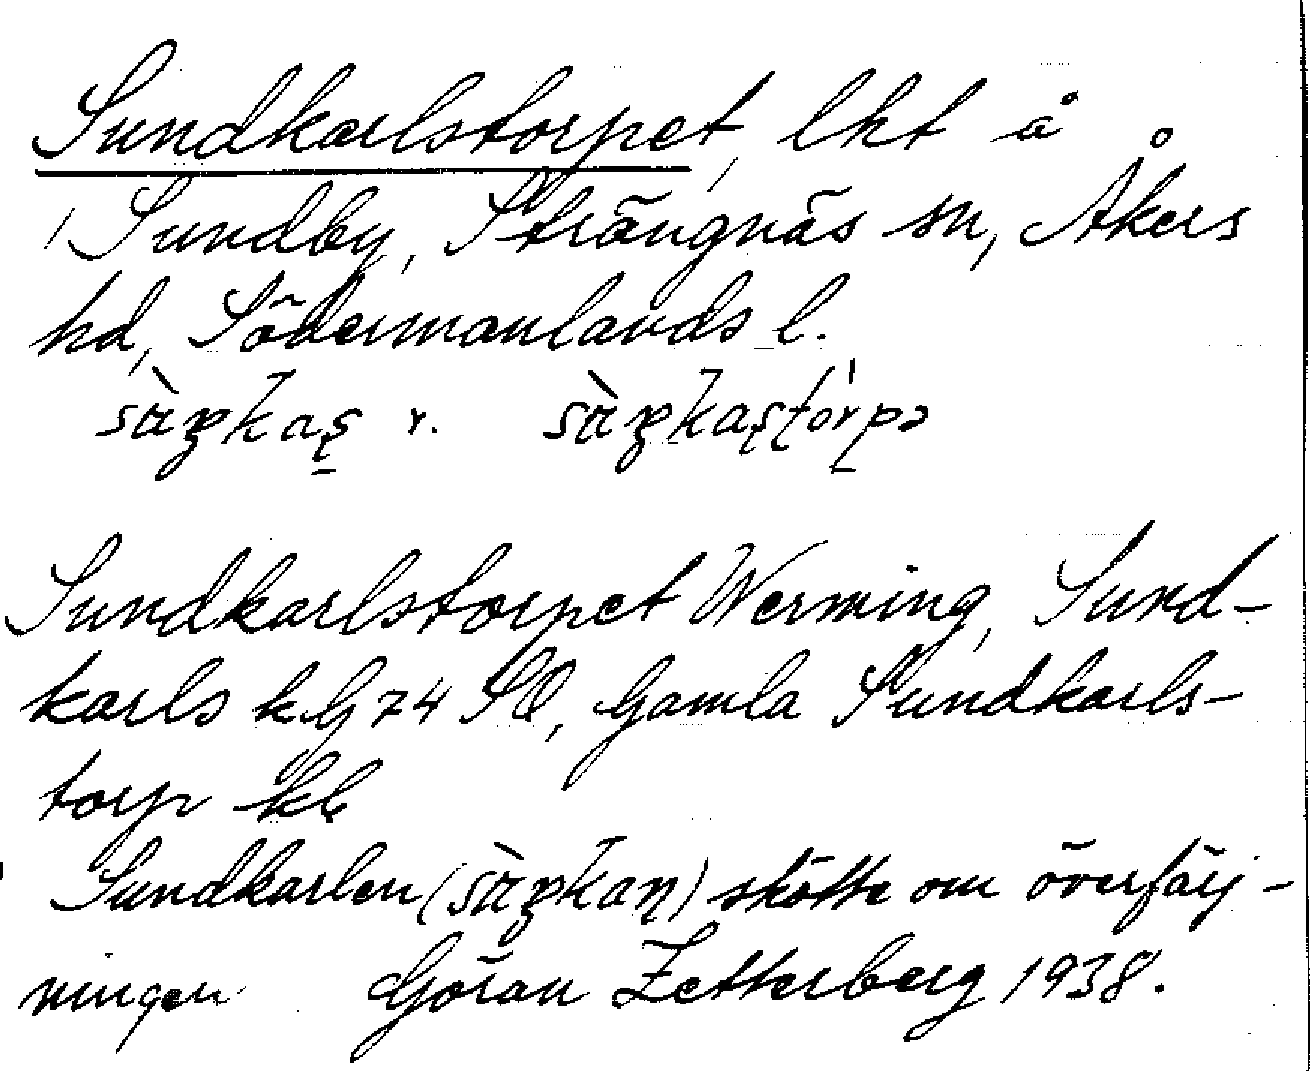 Sundkarlstorpet, lht å
Sundby, Strängnäs sn, Åkers
hd, Södermanlands l.
r.
Sundkarlstorpet Werming, Sund-
karls kG74 SÖ, Gamla Sundkarls-
torp kb
Sundkarlen ( ) skötte om överfärj-
ningen Göran Zetterberg 1938.